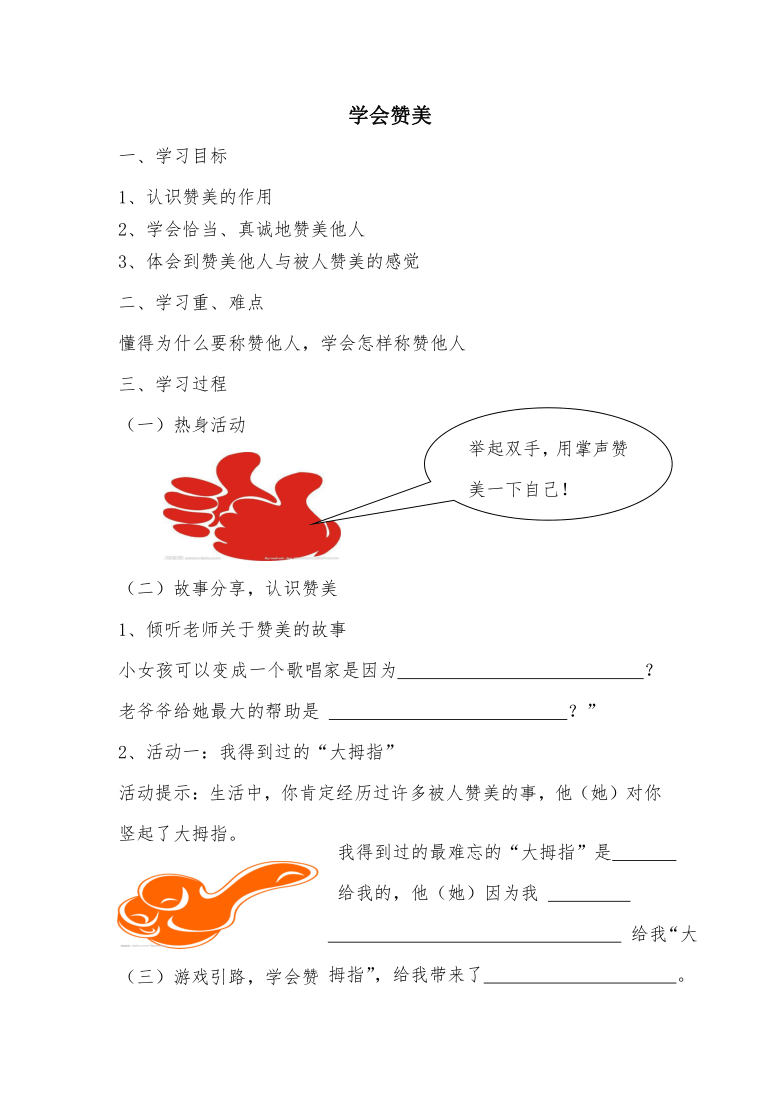 学会赞美
一、学习目标
1、认识赞美的作用
2、学会恰当、真诚地赞美他人
3、体会到赞美他人与被人赞美的感觉
二、学习重、难点
懂得为什么要称赞他人，学会怎样称赞他人
三、学习过程
（一）热身活动
举起双手，用掌声赞
美一下自己！
（二）故事分享，认识赞美
1、倾听老师关于赞美的故事
小女孩可以变成一个歌唱家是因为____________________？
老爷爷给她最大的帮助是 ____________________？”
2、活动一：我得到过的“大拇指”
活动提示：生活中，你肯定经历过许多被人赞美的事，他（她）对你
竖起了大拇指。
我得到过的最难忘的“大拇指”是______
给我的，他（她）因为我 ________
____________________________ 给我“大
拇指”，给我带来了__________________。
（三）游戏引路，学会赞